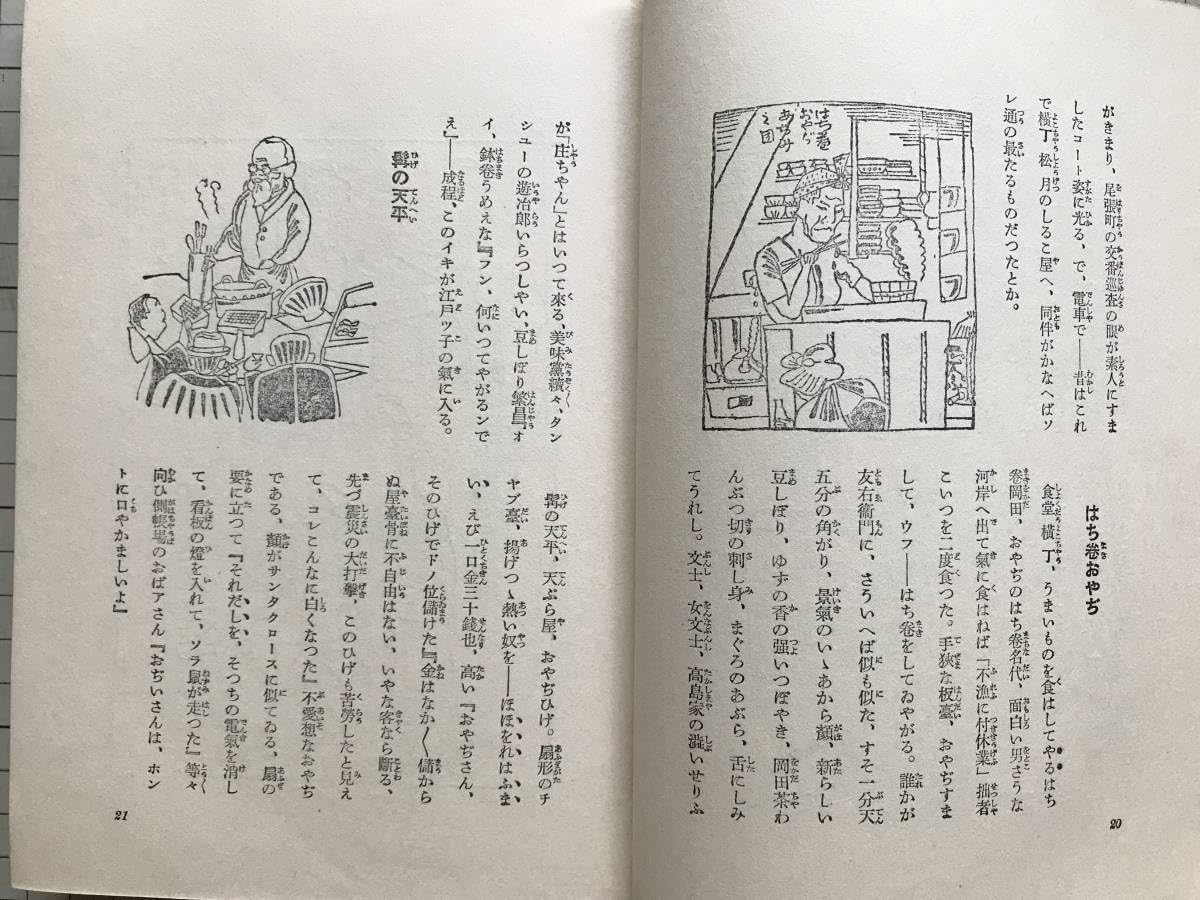 がきまり、尾張町の交番巡査の眼が素人にすま
したコート姿に光る、で、電車で――昔はこれ
で横丁松月のしるこ屋へ、同伴がかなへばソ
レ通の最たるものだつたとか。
はち巻
おやぢ
はち巻おやぢ
食堂横丁、うまいものを食はしてやるはち
巻岡田、おやぢのはち巻名代、面白い男さうな
河岸へ出て氣に食はねば「不漁に付休業」拙者
こいつを二度食つた。手狹な板臺、おやぢすま
して、ウフ――はち巻をしてゐやがる。誰かが
友右衞門に、さういへば似も似た、すそ一分天
五分の角がり、景氣のいゝあから顏、新らしい
豆しぼり、ゆずの香の强いつぼやき、岡田茶わ
んぶつ切の刺し身、まぐろのあぶら、舌にしみ
てうれし。文士、女文士、高島家の澁いせりふ
20
が「庄ちやん」とはいつて來る、美味黨續々、タン
シユーの遊冶郎いらつしやい、豆しぼり繁昌『オ
イ、鉢卷うめえな』『フン、何いつてやがるンで
え』――成程、このイキが江戸ツ子の氣に入る。
髯の天平
髯の天平、天ぷら屋、おやぢひげ。扇形のチ
ヤブ臺、揚げつゝ熱い奴を――ほゝをれはふま
い、えび一口金三十錢也、高い『おやぢさん、
そのひげでドノ位儲けた』『金はなか〳〵儲から
ぬ屋臺骨に不自由はない、いやな客なら斷る、
先づ震災の大打擊、このひげも苦勞したと見え
て、コレこんなに白くなつた』不愛想なおやぢ
である、顏がサンタクロースに似てゐる、扇の
要に立つて『それだしを、そつちの電氣を消し
て、看板の燈を入れて、ソラ鼠が走つた』等々
向ひ側帳場のおばアさん『おぢいさんは、ホン
トに口やかましいよ』
21